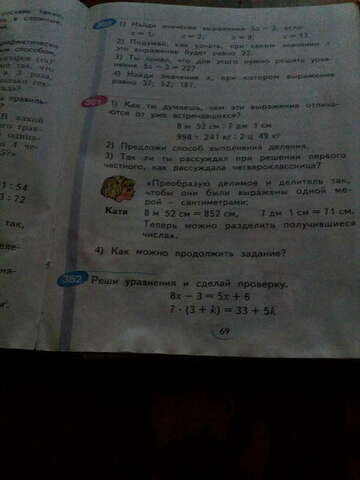 1) Найди значение выражения 5x − 3, если:
x = 1; x = 2; x = 8; x = 13.
2) Подумай, как узнать, при каком значении x
это выражение будет равно 22.
3) Ты понял, что для этого нужно решить урав-
нение 5x − 3 = 22?
4) Найди значения x, при котором выражение
равно 37; 52; 187.
361
1) Как ты думаешь, чем эти выражения отлича-
ются от уже встречавшихся?
8 м 52 см : 7 дм 1 см
994 т 241 кг : 2 ц 49 кг
2) Предложи способ выполнения деления.
3) Так ли ты рассуждал при решении первого
частного, как рассуждала четвероклассница?
«Преобразую делимое и делитель так,
чтобы они были выражены одной ме-
рой – сантиметрами:
Катя
8 м 52 см = 852 см, 7 дм 1 см = 71 см.
Теперь можно разделить получившиеся
числа».
4) Как можно продолжить задание?
362
Реши уравнения и сделай проверку.
8x − 3 = 5x + 6
7 · (3 + k) = 33 + 5k
69